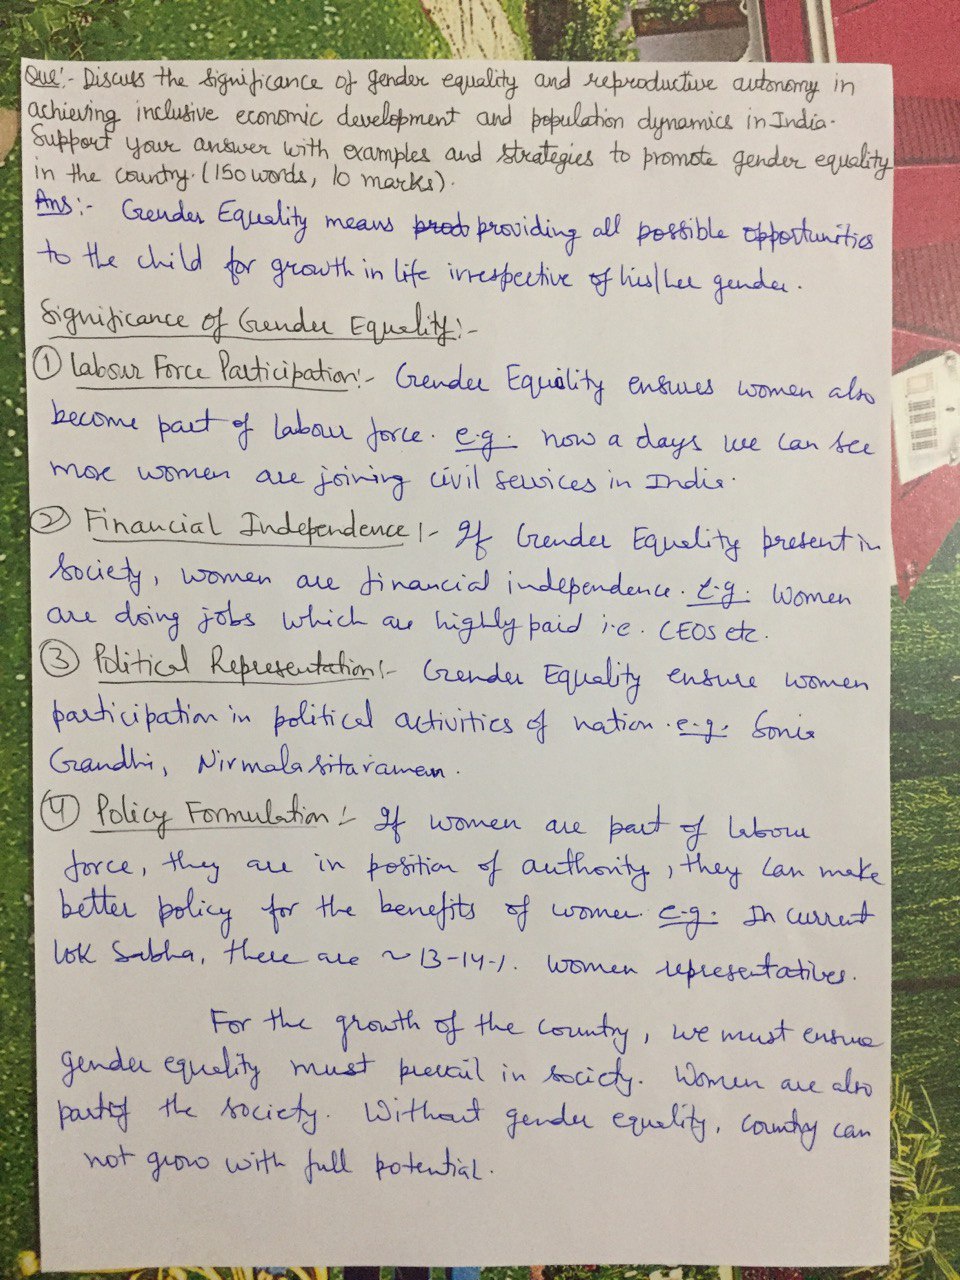 Que:- Discuss the significance of gender equality and reproductive autonomy in
achieving inclusive economic development and population dynamics in India.
Support your answer with examples and strategies to promote gender equality
in the country. (150 words, 10 marks).
Ans:- Gender Equality means prod providing all possible opportunities
to the child for growth in life irrespective of his/her gender.
Significance of Gender Equality:-
① Labour Force Participation:- Gender Equality ensures women also
become part of labour force. e.g. now a days we can see
more women are joining civil services in India.
② Financial Independence :- If Gender Equality present in
society, women are financial independence. e.g. Women
are doing jobs which are highly paid i.e. CEOs etc.
③ Political Representation:- Gender Equality ensure women
participation in political activities of nation. e.g. Sonia
Gandhi, Nirmala sitaraman.
④ Policy Formulation :- If women are part of labour
force, they are in position of authority, they can make
better policy for the benefits of women. e.g. In current
lok Sabha, there are ~ 13-14 % women representatives.
For the growth of the country, we must ensure
gender equality must prevail in society. Women are also
part of the society. Without gender equality, country can
not grow with full potential.